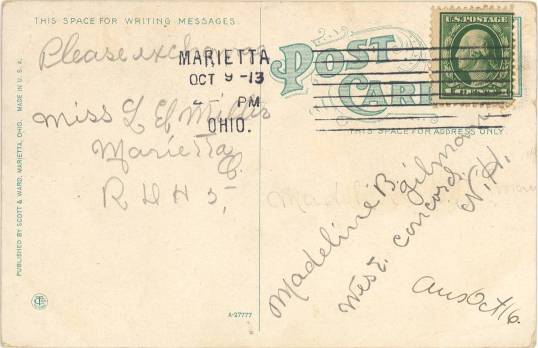 THIS SPACE FOR WRITING MESSAGES
Please exchange
Miss L E Mills
Marietta
O.
R H H 5,
PUBLISHED BY SCOTT & WARD, MARIETTA, OHIO. MADE IN U.S.A.
A-27777
MARIETTA
OCT 9-13
PM
OHIO.
POST
CARD
U.S. POSTAGE
THIS SPACE FOR ADDRESS ONLY
Madeline B. Gilman
West Concord
N.H.
Ans Oct 16.